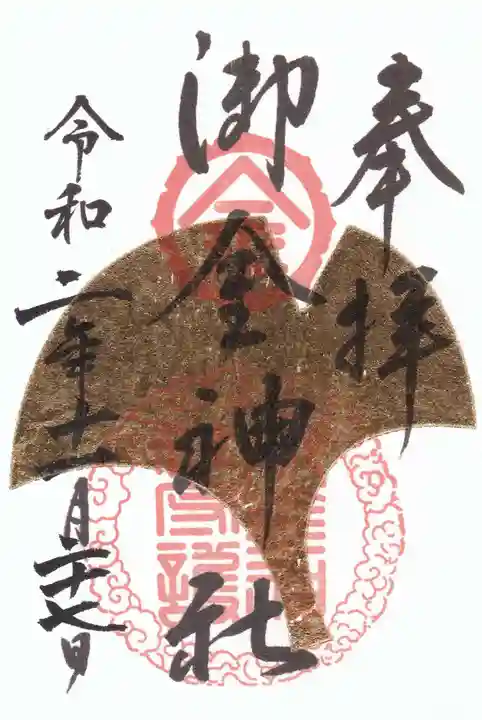 奉拝
御金神社
令和二年十一月二十七日